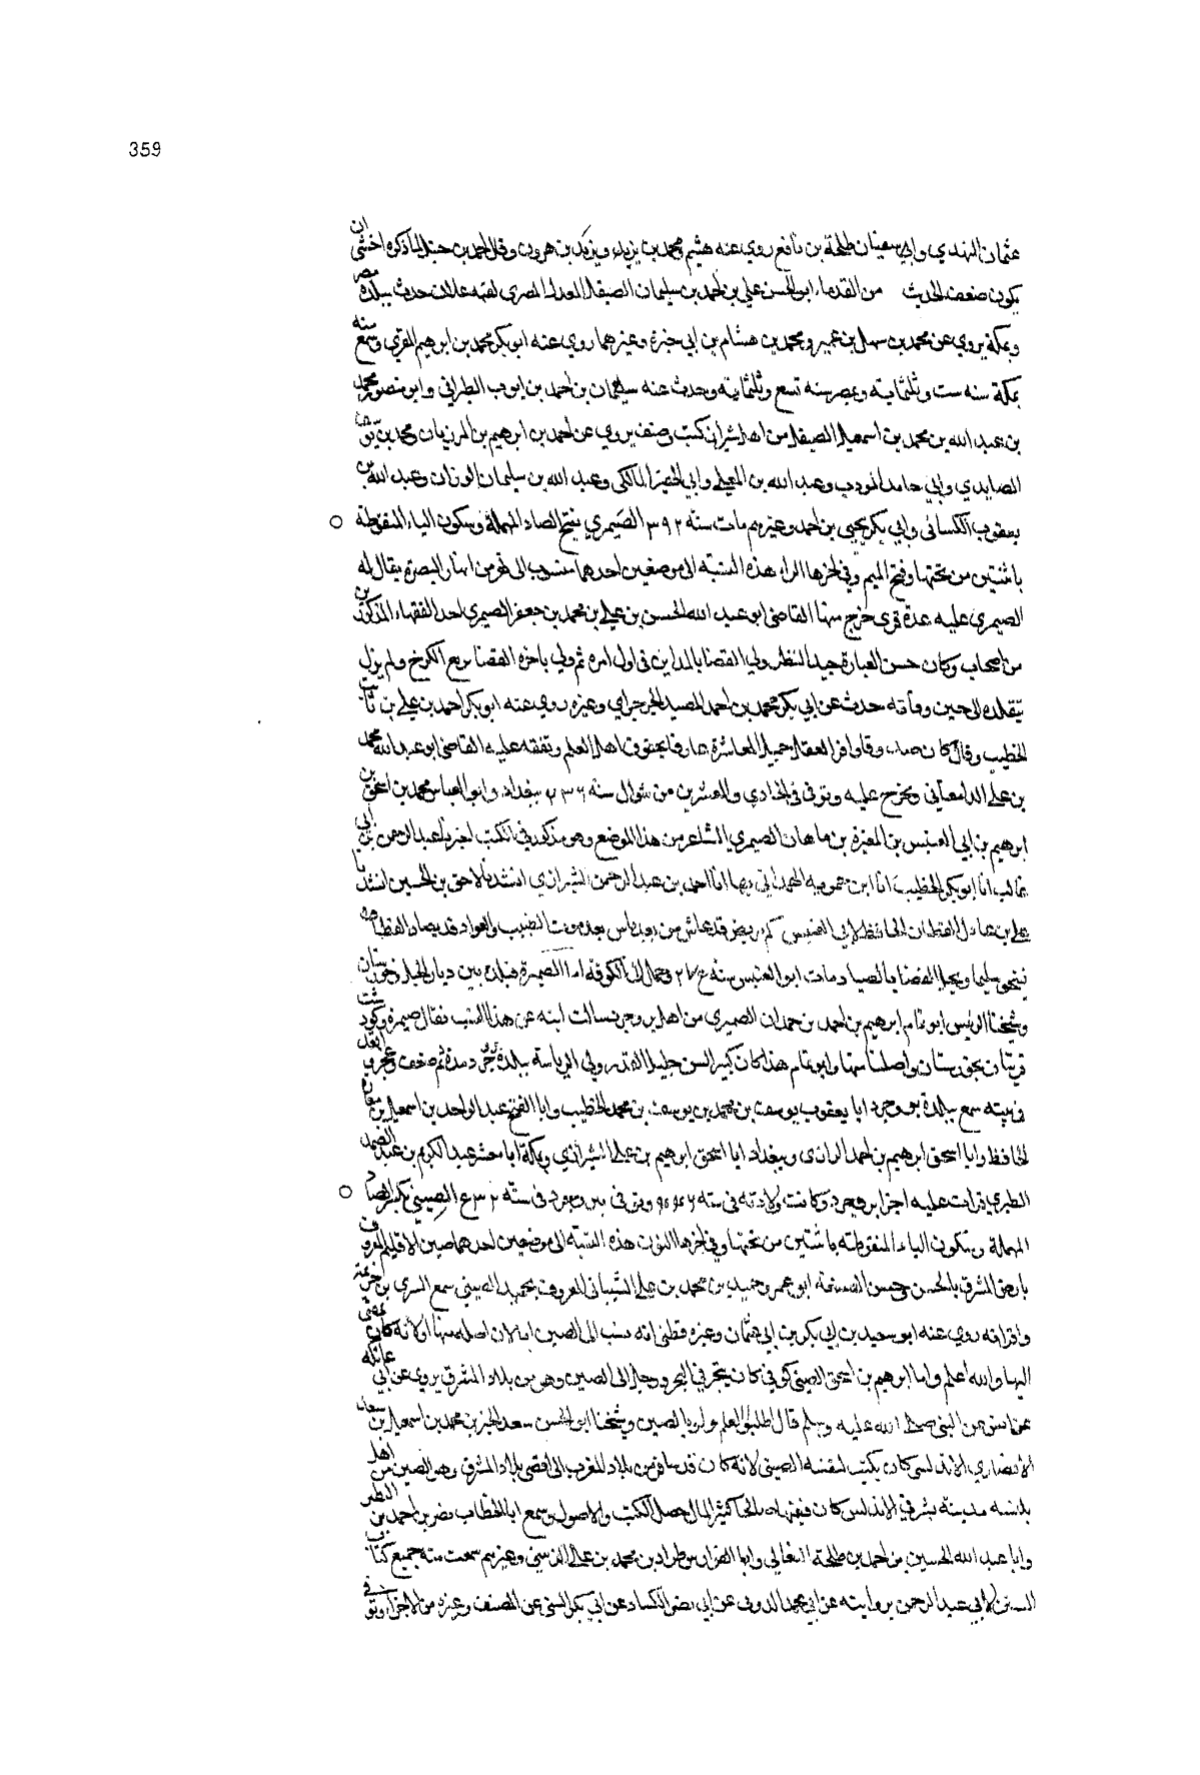 359
عثمان النهدي وابي سفيان طلحة بن نافع روي عنه هشيم ومحمد بن يزيد ويزيد بن هرون وقال احمد بن حنبل لما ذكره اخشى ان
يكون ضعيف الحديث من القدماء ابو الحسن علي بن احمد بن سليمان الصيقل المعدل المصري لقبه علان حدث ببلده مصر
وبمكة يروي عن محمد بن سهل بن عمير ومحمد بن هشام بن ابي خيرة وغيرهما روي عنه ابو بكر محمد بن ابرهيم المقري وسمع منه
بمكة سنه ست وثلثمايته وبمصر سنه تسع وثلثمايته وحدث عنه سليمان بن احمد بن ايوب الطبراني وابو منصور محمد
بن عبد الله بن محمد بن اسمعيل الصيقل من اهل شيراز كتب وصنف يروي عن احمد بن ابرهيم بن المرزبان ومحمد بن
الصايدي وابي حامد المودب وعبد الله بن المعلى وابي الخير المالكي وعبد الله بن سليمان الوزان وعبد الله بن
يعقوب الكسائى وابي بكر يحيى بن احمد وغيرهم مات سنة ٣٩٢ الصَيمري بفتح الصاد المهملة وسكون الياء المنقوطة
باثنتين من تحتها وفتح الميم وفي اخرها الراء هذه النسبة الى موضعين احدهما منسوب الى نهر من انهار البصرة يقال له
الصيمري عليه عدة قرى خرج منها القاضى ابو عبد الله الحسين بن علي بن محمد بن جعفر الصيمري احد الفقهاء المذكورين
من اصحاب وكان حسن العبارة جيد النظر ولي القضا بالمداين في اول امره ثم ولي باخره القضا بربع الكرخ ولم يزل
يتقلده الى حين وفاته حدث عن ابي بكر محمد بن احمد المفيد الجرجراي وغيره روي عنه ابو بكر احمد بن علي بن ثابت
الخطيب وقال كان صدوقا وافر العقل جميل المعاشرة عارفا بحقوق اهل العلم وتفقه عليه القاضى ابو عبد الله محمد
بن علي الدامغاني وتخرج عليه وتوفى في الحادي والعشرين من شوال سنه ٤٣٦ ببغداد وابو العباس محمد بن اسحق بن
ابرهيم بن ابي العنبس بن المغيرة بن ماهان الصيمري الشاعر من هذا الموضع وهو مذكور في الكتب اخبرنا عبد الرحمن بن ابي
غالب انا ابو بكر الخطيب انا ابن حمويه الهمداني بها انا احمد بن عبد الرحمن الشيرازي انشدنا لاحق بن الحسين انشدنا
علي بن عاذل القطان الحافظ لابي العنبس كم مريض قد عاش من بعد ياس بعد موت الطبيب والعواد قد يصاد القطا
فينجو سليما ويحل القضا بالصياد مات ابو العنبس سنه ٢٧٥ وحمل الى الكوفة اما الصيمرة فبلدة بين ديار الجبل وخوزستان
وشيخنا الريس ابو تمام ابرهيم بن احمد بن حمدان الصيمري من اهل بروجرد سالت ابنه عن هذا النسب فقال صيمرة وكودشت
قريتان بخوزستان واصلنا منها وابو تمام هذا كان كبير السن جليل القدر ولي الرياسة ببلدة بروجرد مدة ثم ضعف وعجز وقعد
في بيته سمع ببلدة بروجرد ابا يعقوب يوسف بن محمد بن يوسف بن محمد الخطيب وابا الفتح عبد الواحد بن اسمعيل بن
الحافظ وابا اسحق ابرهيم بن احمد الرازى وببغداد ابا اسحق ابرهيم بن علي الشيرازي وبمكة ابا معشر عبد الكريم بن عبد الصمد
الطبري قرات عليه اجزا ببروجرد وكانت ولادته في سنة وتوفى ببروجرد في سنة الصيني بكسر الصاد
المهملة وسكون الياء المنقوطة باثنتين من تحتها وفي اخرها النون هذه النسبة الى موضعين احدهما صين الاقليم المعروف
بارض المشرق بالحسن وحسن الصنعة ابو عمرو حميد بن محمد بن علي الشيباني المعروف بحميد الصيني سمع السري بن خزيمة
واقرانه روي عنه ابو سعيد بن ابي بكر بن ابي عثمان وغيره فظنى انه نسب الى الصين اما لان اصله منها او لانه كان يمضى
اليها والله اعلم واما ابرهيم بن اسحق الصيني كوفي كان يتجر في البحر ورحل الى الصين وهو من بلاد المشرق يروي عن ابي عاتكه
عن انس عن النبي صلى الله عليه وسلم قال اطلبوا العلم ولو بالصين وشيخنا ابو الحسن سعد الخير بن محمد بن اسمعيل بن سعد
الانصاري الاندلسي كان يكتب لنفسه الصيني لانه كان قد سافر من بلاد المغرب الى اقصى بلاد المشرق وهو الصين من اهل
بلنسيه مدينة بشرقي الاندلس كان فقيها صالحا كثير المال حصل الكتب والاصول وسمع ابا الخطاب نصر بن احمد بن البطر
وابا عبد الله الحسين بن احمد بن طلحة النعالي وابا الفوارس طراد بن محمد بن علي الزينبي وغيرهم سمعت منه جميع كتاب
السنن لابي عبد الرحمن بروايته عن ابي محمد الدونى عن ابي نصر الكسار عن ابي بكر السني عن المصنف وغيره من الاجزا وتوفي